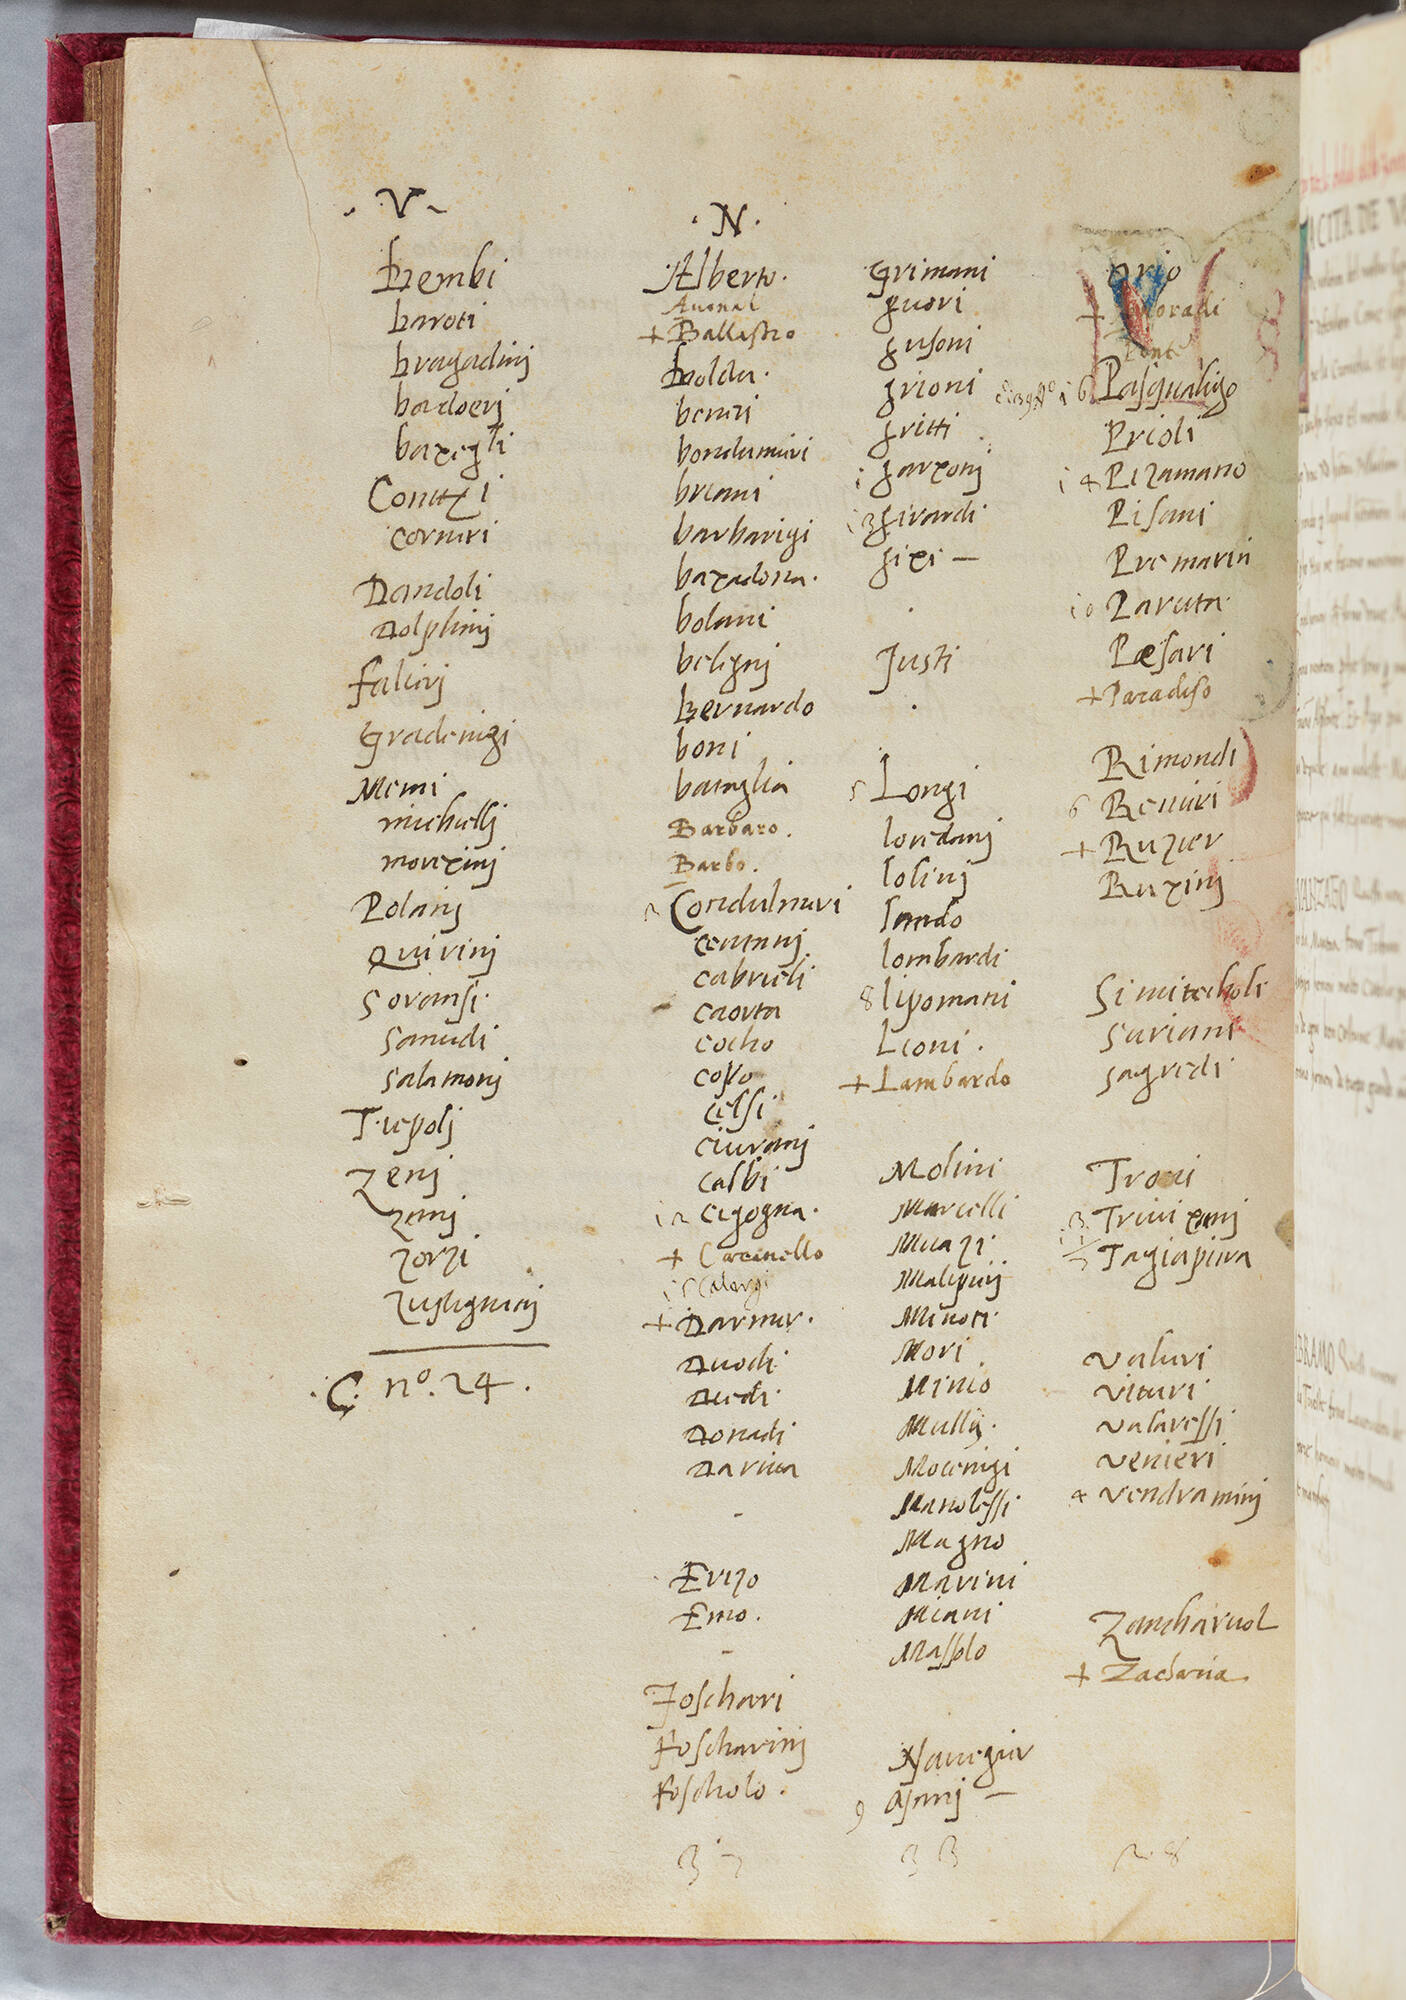 . V ~
bembi
baroti
bragadinj
badoerj
baxeglj
Contarj
cornari
Dandoli
Dolphinj
falierj
Gradenigi
Memi
michiellj
morexinj
Polanj
Quirinj
Soransi.
Sanudi
Salamonj
Tiepolj
Zenj
zanj
zorzi
zustignanj
.C. nº. 24.
. N .
Alberto.
Auonal
+ Ballastro
boldu.
bemri
bondumiri
briani
barbarigi
baxadona.
bolani
belegnj
Bernardo
boni
bataglia
Barbaro.
Barbo.
2 Condulmeri
centanj
cabrieli
caorta
cocho
coppo
celsi
ciuranj
calbi
i2 cigogna.
+ Carauello
i5 Calergi
+ Darmer.
Duodi
Diedi.
Donadi
Dariua
Erizo
Emo.
Foschari
Foscharinj
Foscholo.
37
Grimani
guori
gusoni
grioni
gritti
i garzonj
i3 girardi
gixi —
Justi
5 Longi
loredanj
lolinj
lando
lombardi
8 lipomani
Leoni.
+ Lambardo
Molini
Marcelli
Muazi.
Malipierj
Minoti.
Mori
Minio
Mullj.
Mocenigi
Manolessi
Magno
Marini
Miani
Massolo
Nauegier
9 Nanj —
33
Orio
6 Pasqualigo
Prioli
i4 Pizamano
Pisani
Premarin
i0 Paruta.
Pesari
+ Paradiso
Rimondi
6 Renieri
+ Ruzier
Ruzinj
Simitecholi
Suriani
Sagredi
Troni
3 Triuixanj
Tagiapiera
Valieri
Vituri
Valaressi
Venieri
4 Vendraminj
Zancharuol
+ Zacharia
28